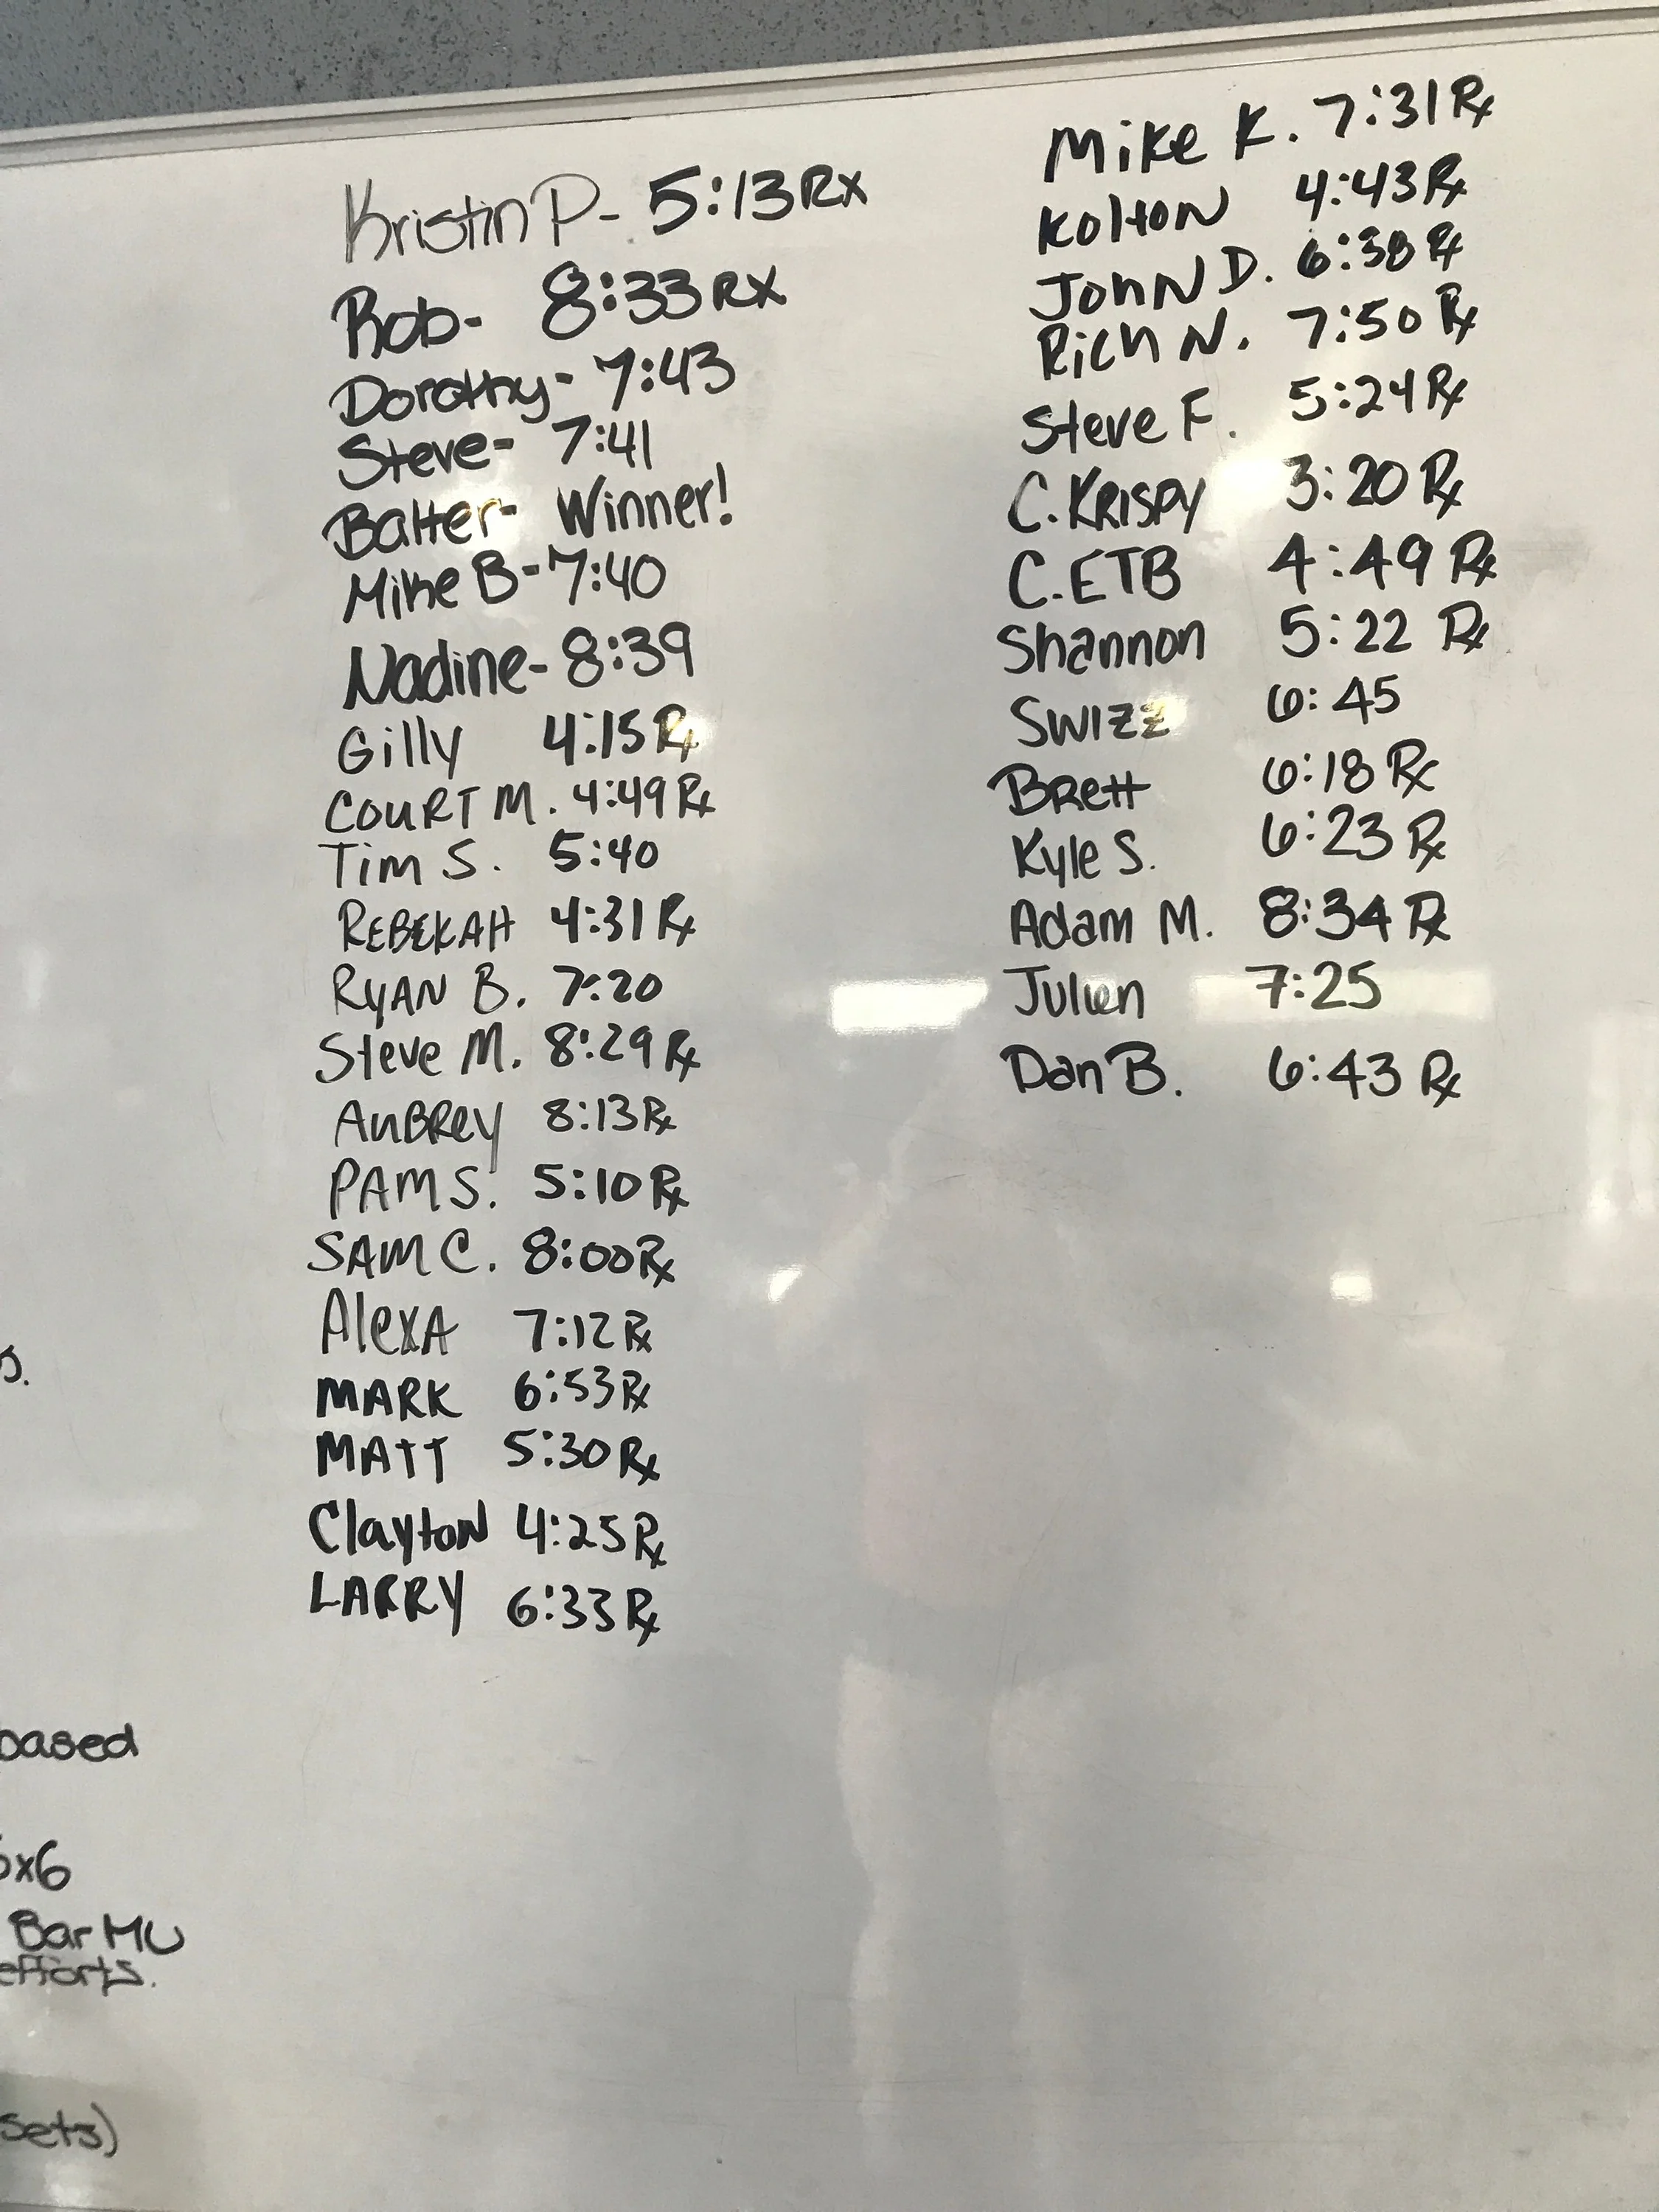 Kristin P- 5:13 Rx
Rob- 8:33 RX
Dorothy- 7:43
Steve- 7:41
Balter- Winner!
Mike B- 7:40
Nadine- 8:39
Gilly 4:15 Rx
COURT M. 4:49 Rx
Tim S. 5:40
REBEKAH 4:31 Rx
RYAN B. 7:20
Steve M. 8:29 Rx
AuBRey 8:13 Rx
PAM S. 5:10 Rx
SAM C. 8:00 Rx
AlexA 7:12 Rx
MARK 6:53 Rx
MATT 5:30 Rx
Clayton 4:25 Rx
LARRY 6:33 Rx
Mike K. 7:31 Rx
Kolton 4:43 Rx
John D. 6:38 Rx
Rich N. 7:50 Rx
Steve F. 5:24 Rx
C. KRISPY 3:20 Rx
C. ETB 4:49 Rx
Shannon 5:22 Rx
SWIZZ 6:45
BRett 6:18 Rx
Kyle S. 6:23 Rx
Adam M. 8:34 Rx
Julien 7:25
Dan B. 6:43 Rx
based
x6
Bar MU
efforts.
sets)